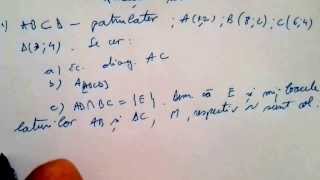 1) ABCD - patrulater ; A(1,2) ; B(8;2) ; C(6,4)
D(3;4). Se cer:
a) Ec. diag. AC
b) A[ABCD]
c) AD∩BC = {E}. Dem că E și mijloacele
laturilor AB și DC, M, respectiv N sunt col.